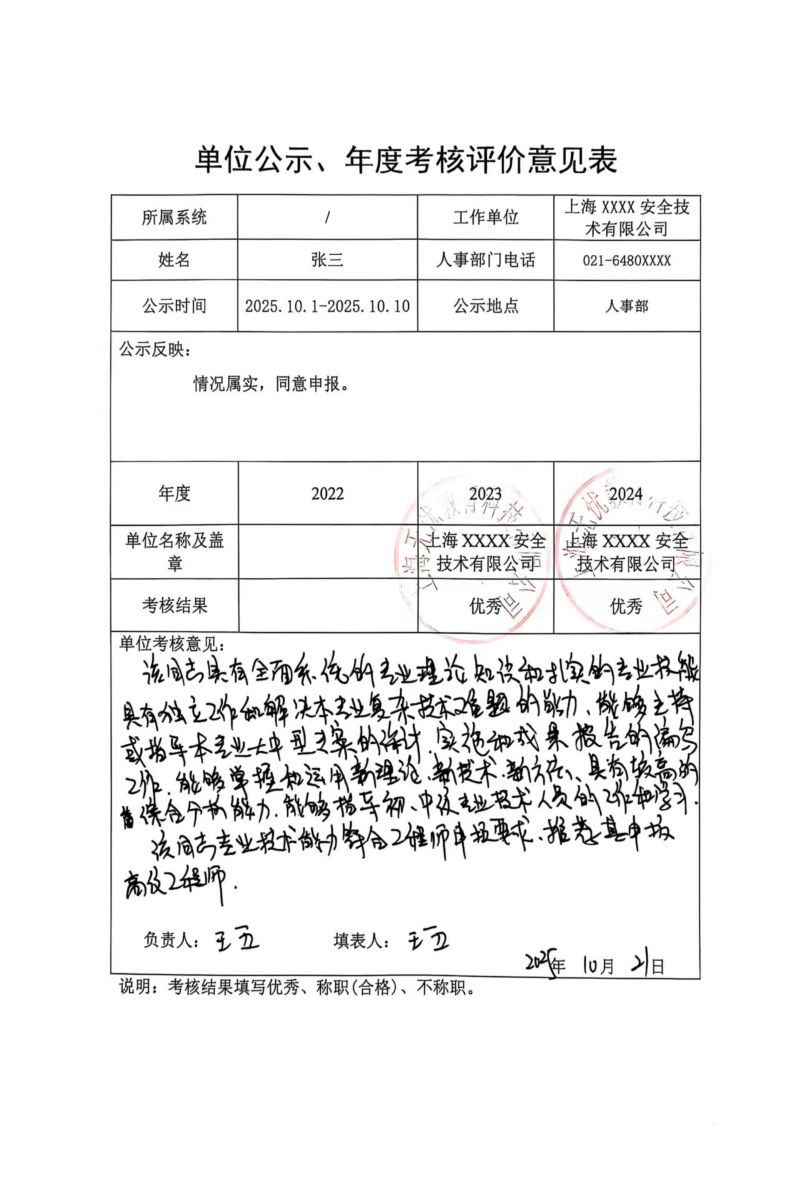 单位公示、年度考核评价意见表
所属系统 / 工作单位 上海 XXXX 安全技术有限公司
姓名 张三 人事部门电话 021-6480XXXX
公示时间 2025.10.1-2025.10.10 公示地点 人事部
公示反映：
情况属实，同意申报。
年度 2022 2023 2024
单位名称及盖章 上海 XXXX 安全技术有限公司 上海 XXXX 安全技术有限公司
考核结果 优秀 优秀
单位考核意见：
该同志具有全面系统的专业理论知识和扎实的专业技能
具有独立工作和解决本专业复杂技术难题的能力、能够主持
或指导本专业大中型方案的设计、实施和成果报告的编写
工作、能够掌握和运用新理论、新技术、新方法、具有较高的
综合分析能力、能够指导初、中级专业技术人员的工作和学习.
该同志专业技术能力符合工程师申报要求、推荐其申报
高级工程师.
负责人：王五 填表人：王五
2025年 10月 21日
说明：考核结果填写优秀、称职(合格)、不称职。